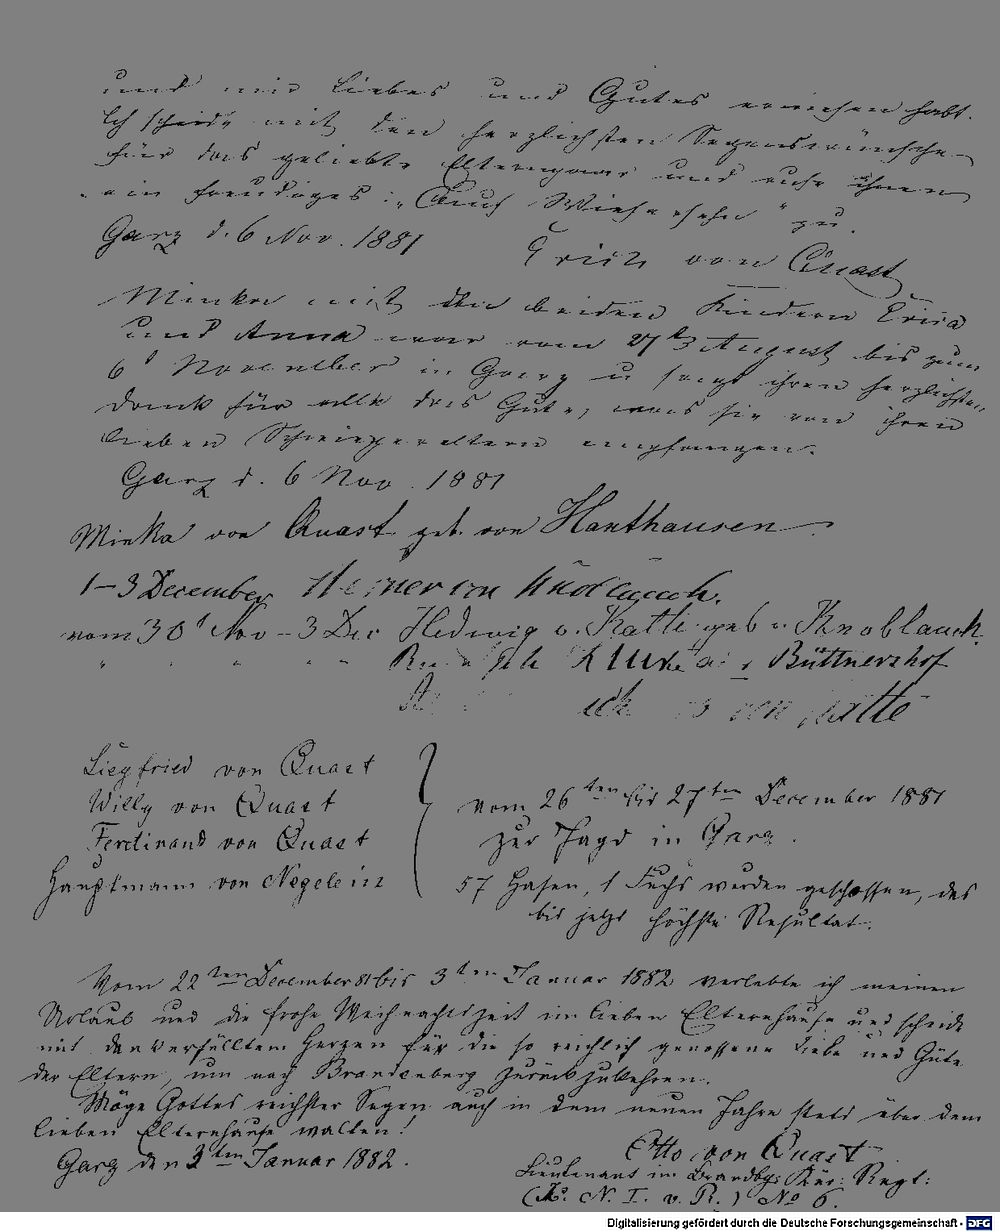 und mir Liebes und Gutes erwiesen habt.
Ich scheide mit den herzlichsten Segenswünschen
für das geliebte Elternpaar und rufe ihnen
ein freudiges: „Auf Wiedersehn" zu.
Garz d. 6 Nov. 1881
Erich von Quast
Minka mit den beiden Kindern Erica
und Anna war vom 27 August bis zum
6 November in Garz u sagt ihren herzlichsten
Dank für alle das Gute, was sie von ihren
lieben Schwiegereltern empfangen.
Garz d. 6 Nov. 1881
Minka von Quast geb. von Haxthausen.
1-3 December Werner von Knoblauch.
vom 30t Nov - 3 Dec Hedwig v. Katte geb v. Knoblauch.
Büttnershof
von Katte
Siegfried von Quast
Willy von Quast
Ferdinand von Quast
Hauptmann von Negelein
vom 26ten bis 27ten December 1881
zur Jagd in Garz.
57 Hasen, 1 Fuchs wurden geschossen, das
bis jetzt höchste Resultat.
Vom 22ten December 81 bis 3ten Januar 1882 verlebte ich meinen
Urlaub und die frohe Weihnachtszeit im lieben Elternhause und scheide
mit dankerfülltem Herzen für die so reichlich genossene Liebe und Güte
der Eltern, um nach Brandenburg zurückzukehren.
Möge Gottes reichster Segen auch in dem neuen Jahre stets über dem
lieben Elternhause walten!
Garz den 3ten Januar 1882.
Otto von Quast
Lieutenant im Brandbg: Kür: Regt:
(K. N. I. v. R.) No 6.
Digitalisierung gefördert durch die Deutsche Forschungsgemeinschaft - DFG